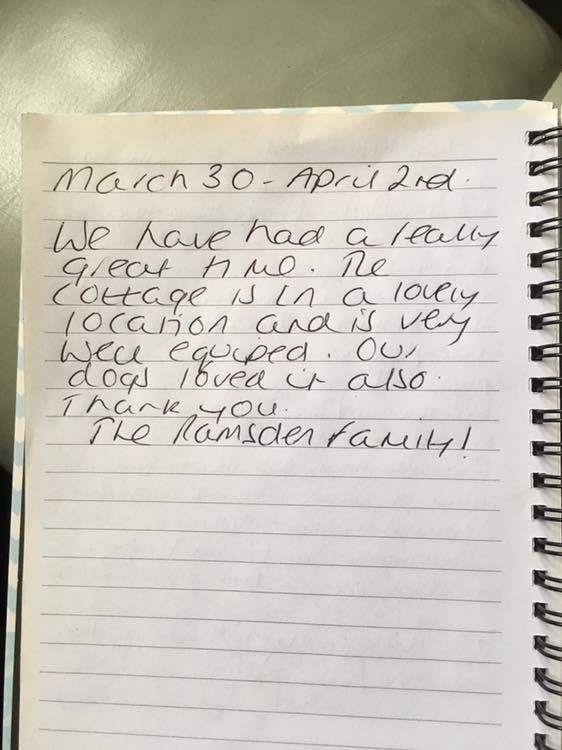 March 30 - April 2nd.
We have had a really
great time. The
cottage is in a lovely
location and is very
well equiped. Our
dogs loved it also.
Thank you.
The Ramsden family!